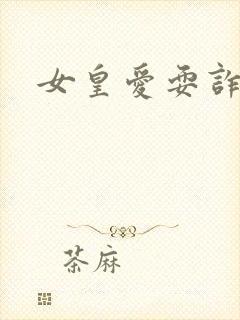 女皇愛耍詐
茶麻